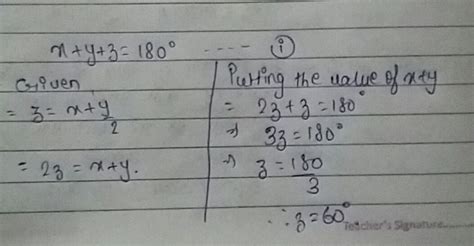 x+y+z=180° ---- (i)
Given
= z = x+y/2
= 2z = x+y.
Putting the value of x+y
= 2z+z=180°
⇒ 3z=180°
⇒ z=180/3
∴ z=60°
Teacher's Signature